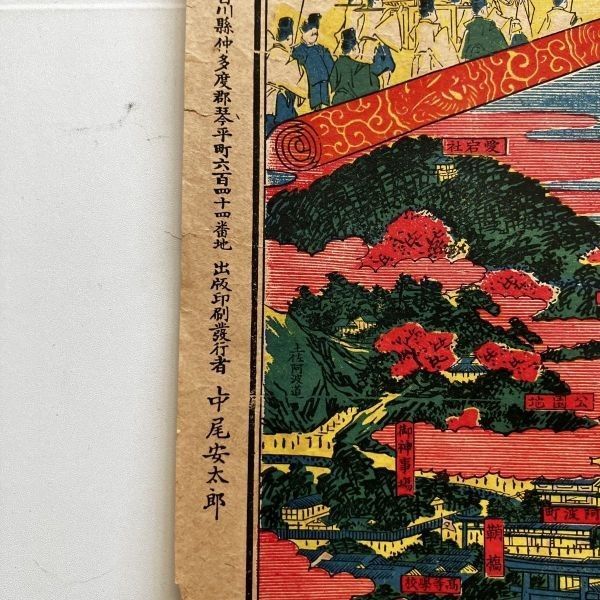 香川縣仲多度郡琴平町六百四十四番地 出版印刷發行者 中尾安太郎
愛宕社
土佐阿波道
公園地
御神事場
阿波町
鞘橋
高等學校